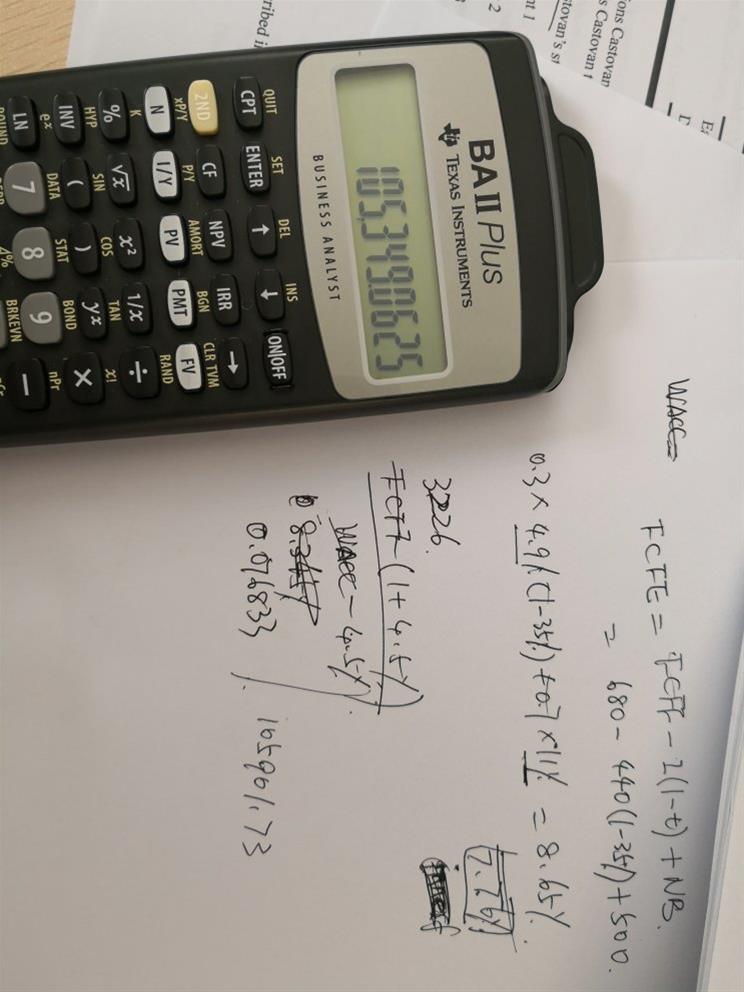 ribed i
t 1
2
tovan's s
ons Castovan
s Castovan
BA II Plus
TEXAS INSTRUMENTS
105,349.0625
BUSINESS ANALYST
QUIT SET DEL INS
CPT ENTER ↑ ↓ ON|OFF
2ND CF NPV IRR →
xP/Y P/Y AMORT BGN CLR TVM
N I/Y PV PMT FV
K RAND
% √x x² 1/x ÷
HYP SIN COS TAN x!
INV ( ) yˣ ×
eˣ DATA STAT BOND nPr
LN 7 8 9 −
BRKEVN
WACC=
FCFE = FCFF - I(1-t) + NB.
= 680 - 440(1-35%) + 500.
0.3 × 4.9%(1-35%) + 0.7 × 11% = 8.65%.
7.26%
FCFF(1+4.5%)
WACC - 4.5%
0.076833
105901.73